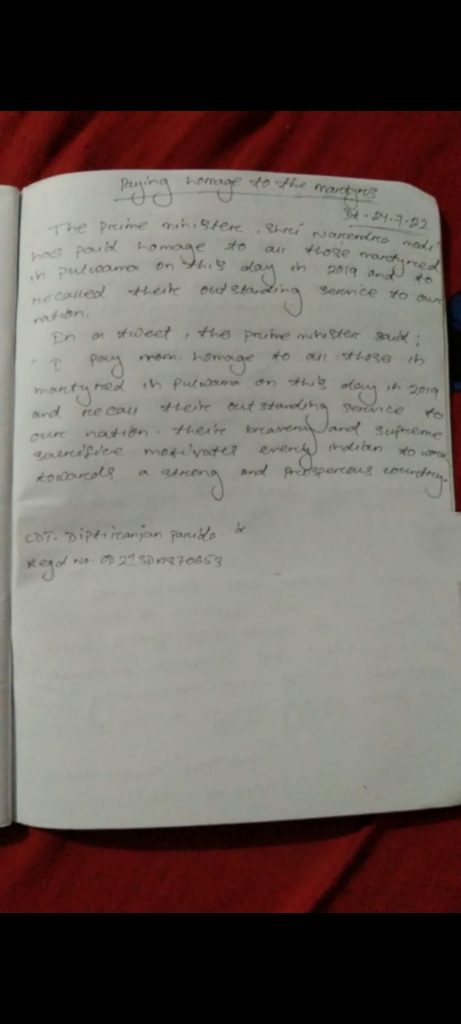 Paying homage to the martyres
Dt - 24.7.22
The prime minister, Shri Narendra modi
has paid homage to all those martyred
in pulwama on this day in 2019 and to
recalled their outstanding service to our
nation.
In a tweet, the prime minister said;
" I pay homage to all those in
martyred in pulwama on this day in 2019
and recall their outstanding service to
our nation. their bravery and supreme
sacrifice motivates every indian to work
towards a strong and prosperous country.
CDT. Diptiranjan parida
Regd No. OD21SDA870653